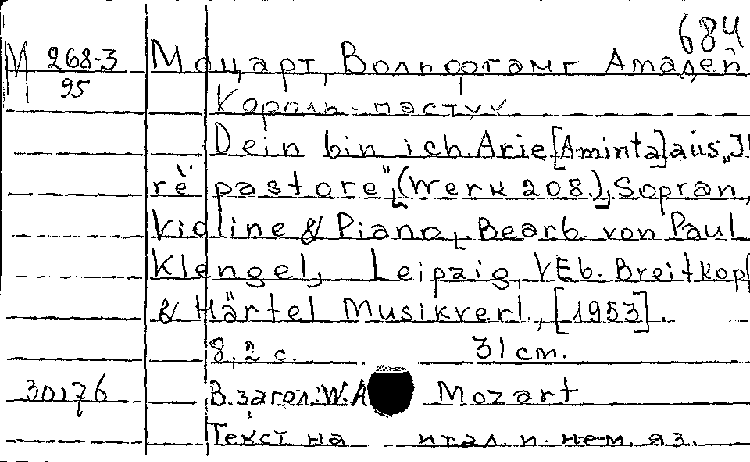 684
М 268-3 Моцарт, Вольфганг Амадей
95
Король-пастух
Dein bin ich. Arie [Aminta] aus „Il
rè pastore", (Werk 208.), Sopran,
Violine & Piano, Bearb. von Paul
Klengel, Leipzig, VEb. Breitkopf
& Härtel Musikverl., [1953].
8, 2 с. 31 cm.
30176 В. загол: W. A Mozart
Текст на итал. и нем. яз.